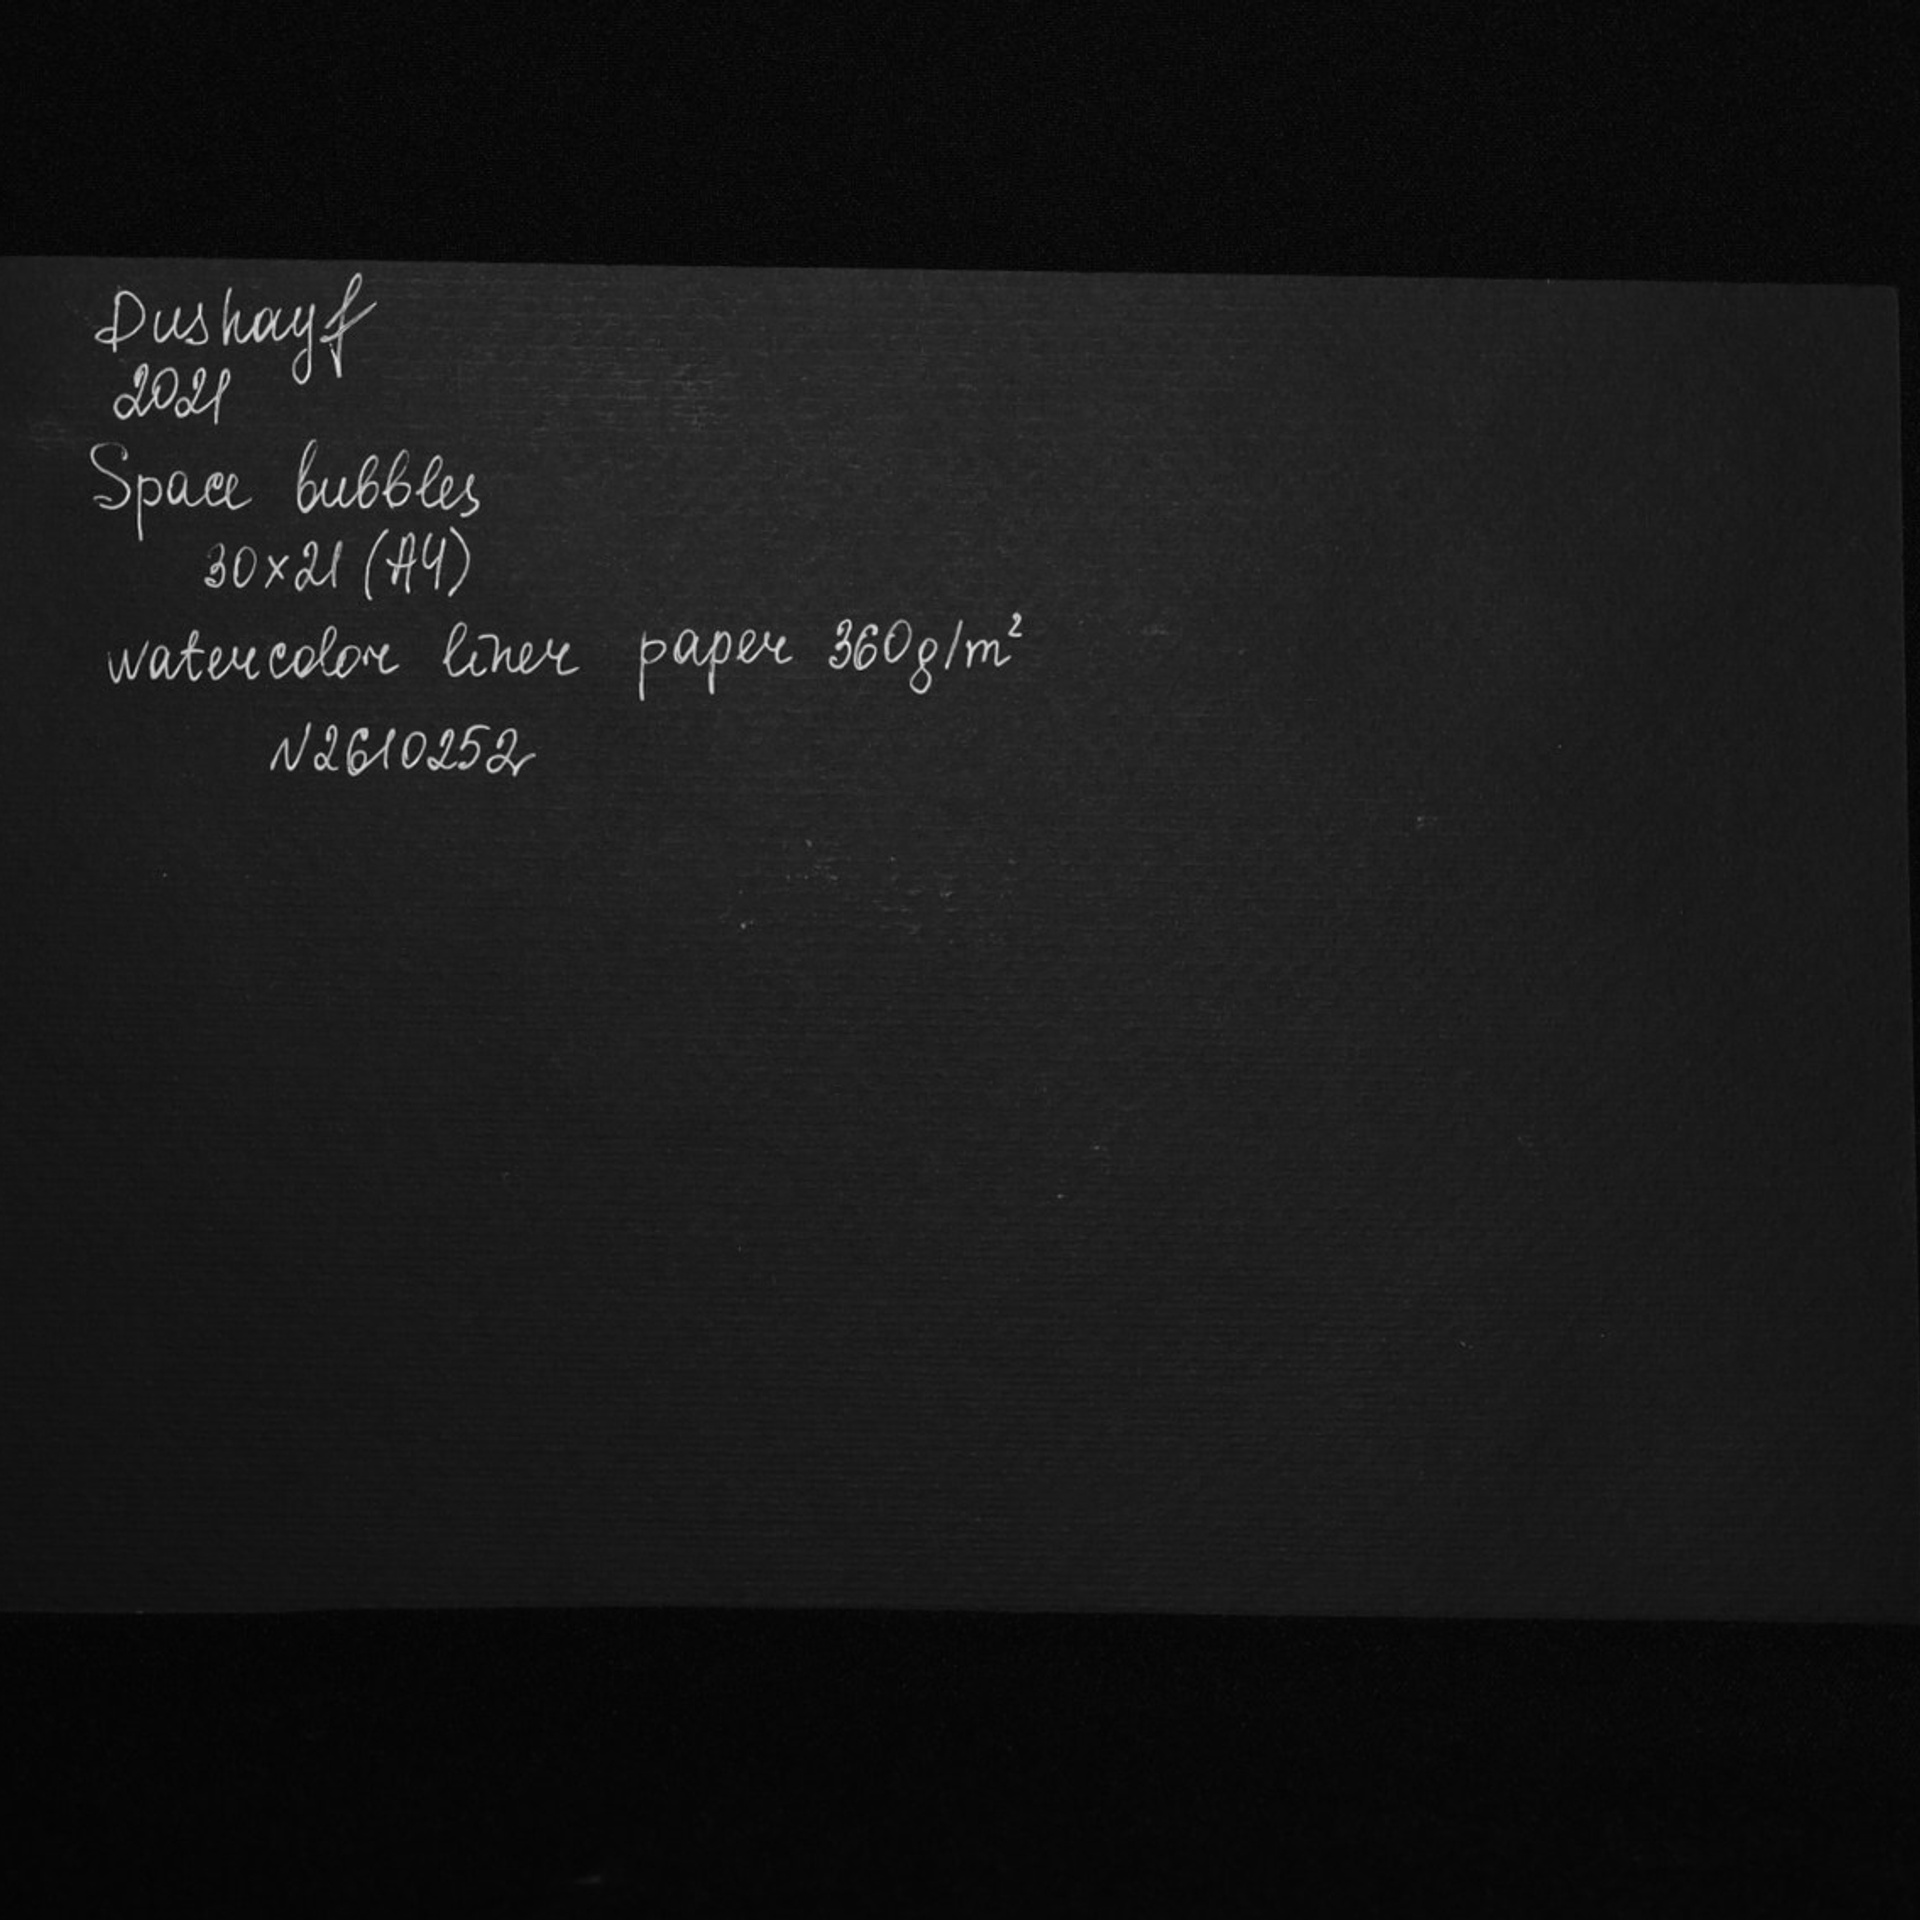 Dushayf
2021
Space bubbles
30x21 (A4)
watercolor liner paper 360g/m²
N2610252